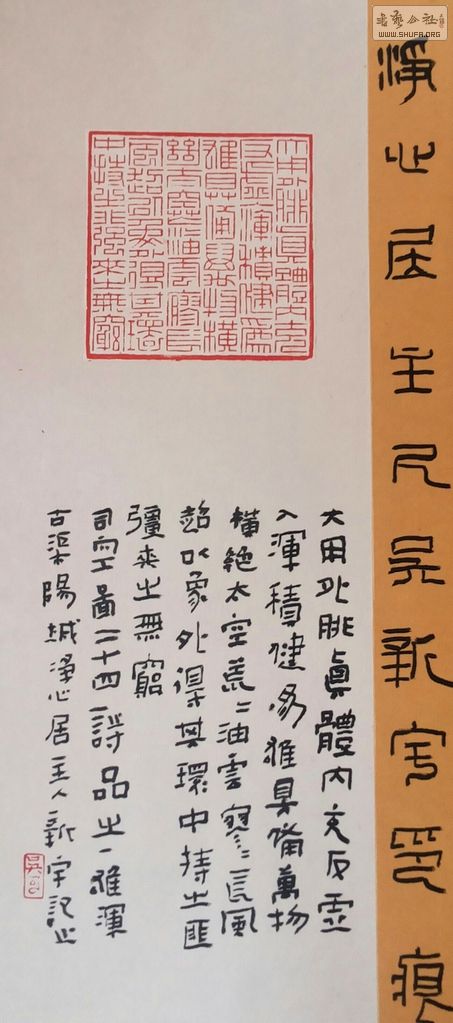 書藝公社
WWW.SHUFA.ORG
淨心居主人吳新宇印痕
大用外腓眞體內充
反虛入渾積健為
雄具備萬物橫
絕太空荒油雲寥長
風超以象外得其環
中持之匪強來之無窮
大用外腓眞體內充反虛
入渾積健為雄具備萬物
橫絕太空荒〻油雲寥〻長風
超以象外得其環中持之匪
彊來之無窮
司空圖二十四詩品之一雄渾
古渠陽城淨心居主人新宇記之
吳